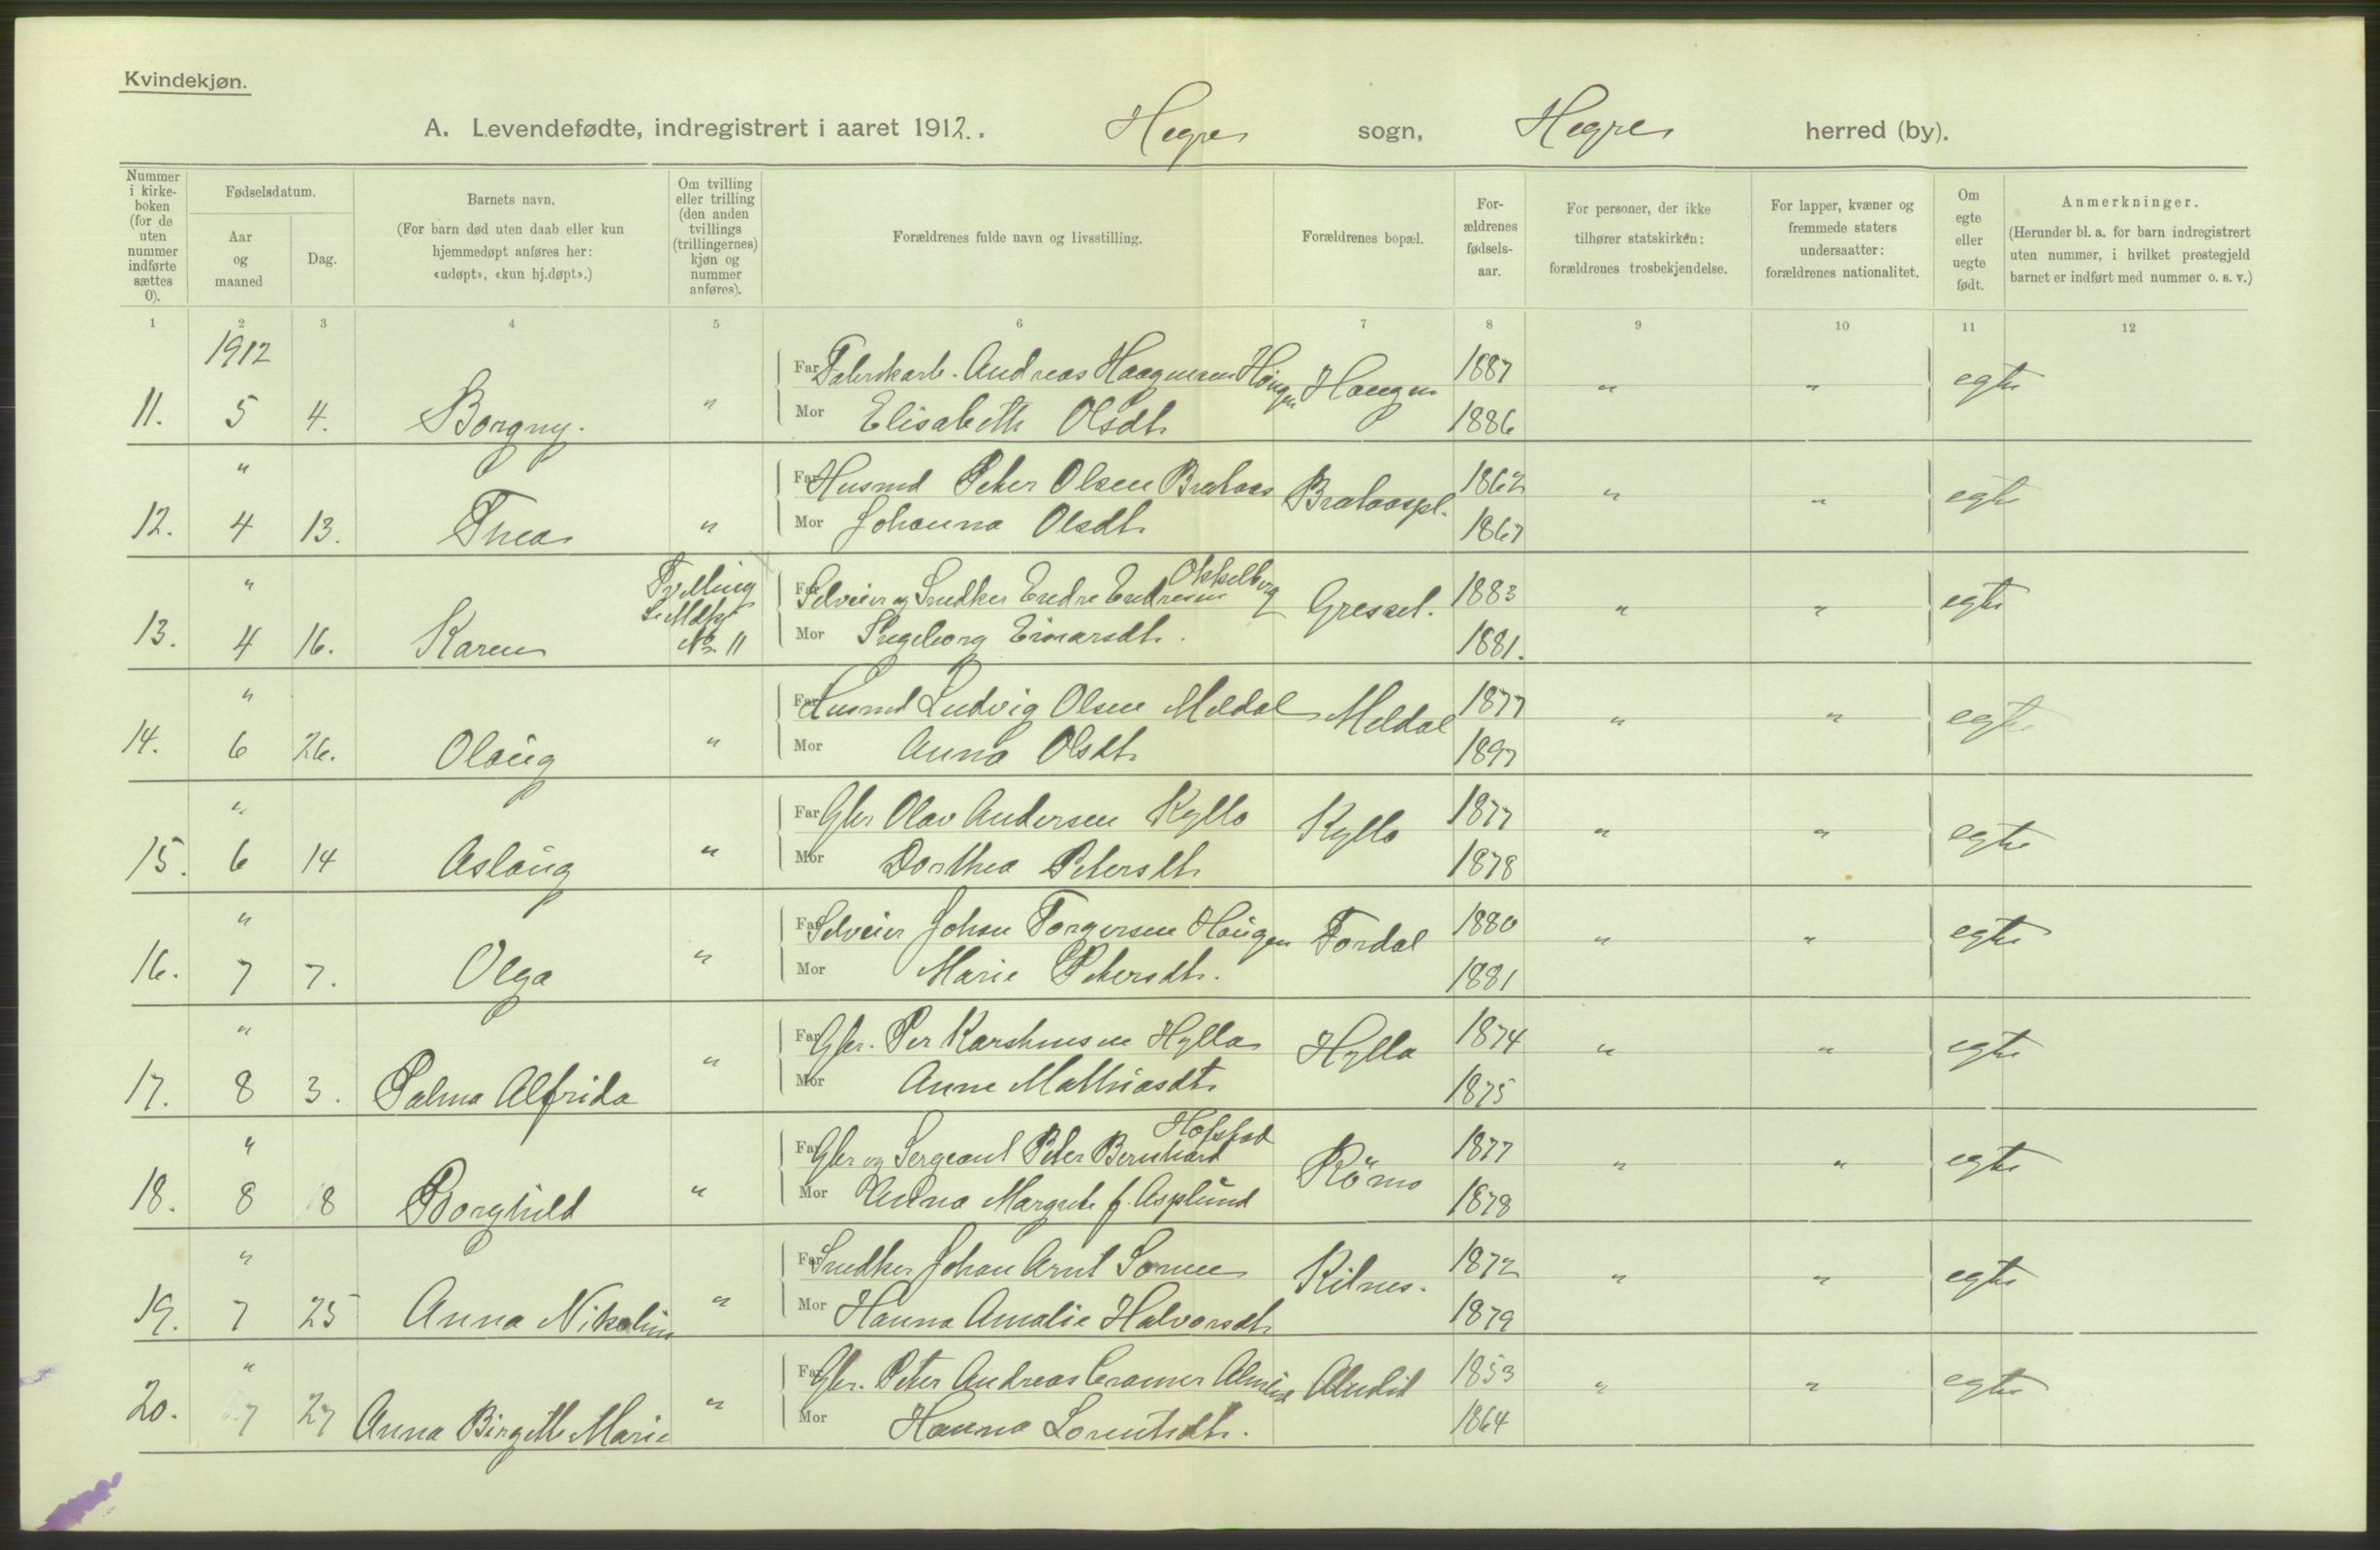 Kvindekjøn.
A. Levendefødte, indregistrert i aaret 1912. Hegre sogn, Hegre herred (by).
Nummer i kirke-boken (for de uten nummer indførte sættes 0).
Fødselsdatum.
Aar og maaned
Dag.
Barnets navn.
(For barn død uten daab eller kun hjemmedøpt anføres her: «udøpt», «kun hj.døpt».)
Om tvilling eller trilling (den anden tvillings (trillingernes) kjøn og nummer anføres).
Forældrenes fulde navn og livsstilling.
Forældrenes bopæl.
For-ældrenes fødsels-aar.
For personer, der ikke tilhører statskirken: forældrenes trosbekjendelse.
For lapper, kvæner og fremmede staters undersaatter: forældrenes nationalitet.
Om egte eller uegte født.
Anmerkninger.
(Herunder bl. a. for barn indregistrert uten nummer, i hvilket prestegjeld barnet er indført med nummer o. s. v.)
1 2 3 4 5 6 7 8 9 10 11 12
1912
Far Andreas Haagensen Haugen Haugen 1887 " " egte
11. 5 4. Borgny. " Mor Elisabeth Olsdtr 1886
" Far Husmd Peter Olsen Brataas Brataaspl. 1862 " " egte
12. 4 13. Thea " Mor Johanna Olsdtr 1867
" Tvilling Far Selveier og Snedker Endre Endresen Okkelberg Gressel. 1883 " " egte
13. 4 16. Karen No 11 Mor Ingeborg Einarsdtr. 1881.
" Far Husmd Ludvig Olsen Meldal Meldal 1877 " " egte
14. 6 26. Olaug " Mor Anna Olsdtr 1897
" Far Gbr Olav Andersen Kyllo Kyllo 1877 " " egte
15. 6 14 Aslaug " Mor Dorthea Petersdtr 1878
" Far Selveier Johan Torgersen Haugen Fordal 1880 " " egte
16. 7 7. Olga " Mor Marie Petersdtr. 1881
" Far Gbr. Per Karstensen Hylla Hylla 1874 " " egte
17. 8 3. Palma Alfrida " Mor Anne Mathiasdtr 1875
" Far Gbr og Sergeant Peter Bernhard Hofstad Römo 1877 " " egte
18. 8 8 Borghild " Mor Anna Margrete f. Asplund 1878
" Far Snedker Johan Arnt Kilnes. 1872 " " egte
19. 7 25 Anna Nikoline " Mor Hanna Amalie Halvorsdtr 1879
" Far Gbr. Peter Andreas Cramer 1853 " " egte
20. 7 27 Anna Birgitte Marie " Mor Hanna Lorentsdtr. 1864